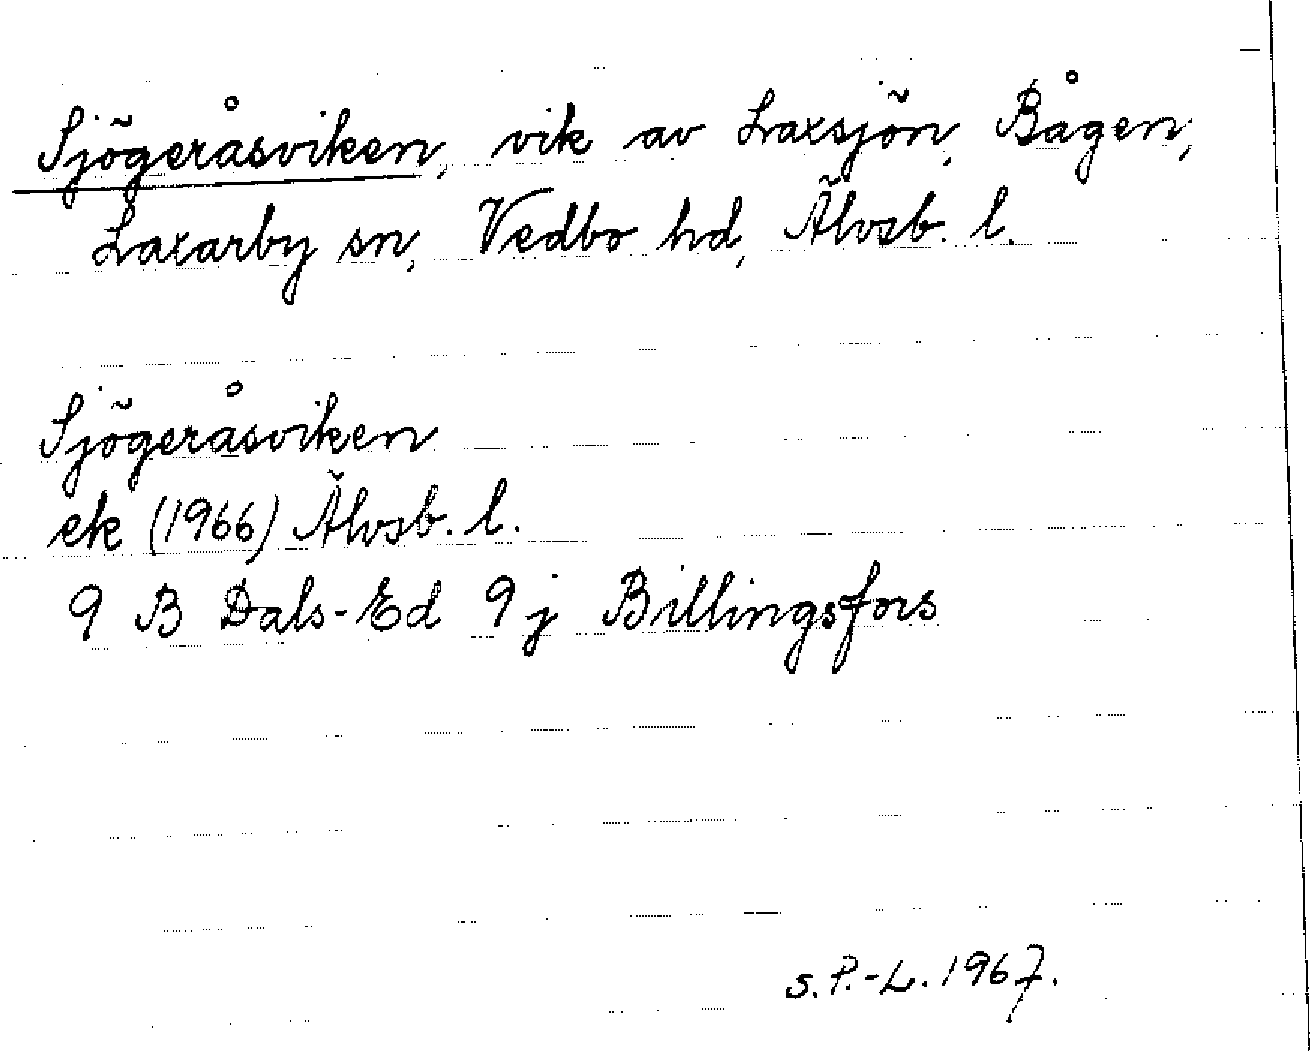 Sjögeråsviken, vik av Laxsjön, Bågen,
Laxarby sn, Vedbo hd, Älvsb. l.
Sjögeråsviken
ek (1966) Älvsb. l.
9 B Dals-Ed 9 j Billingsfors
S. P.-L. 1967.